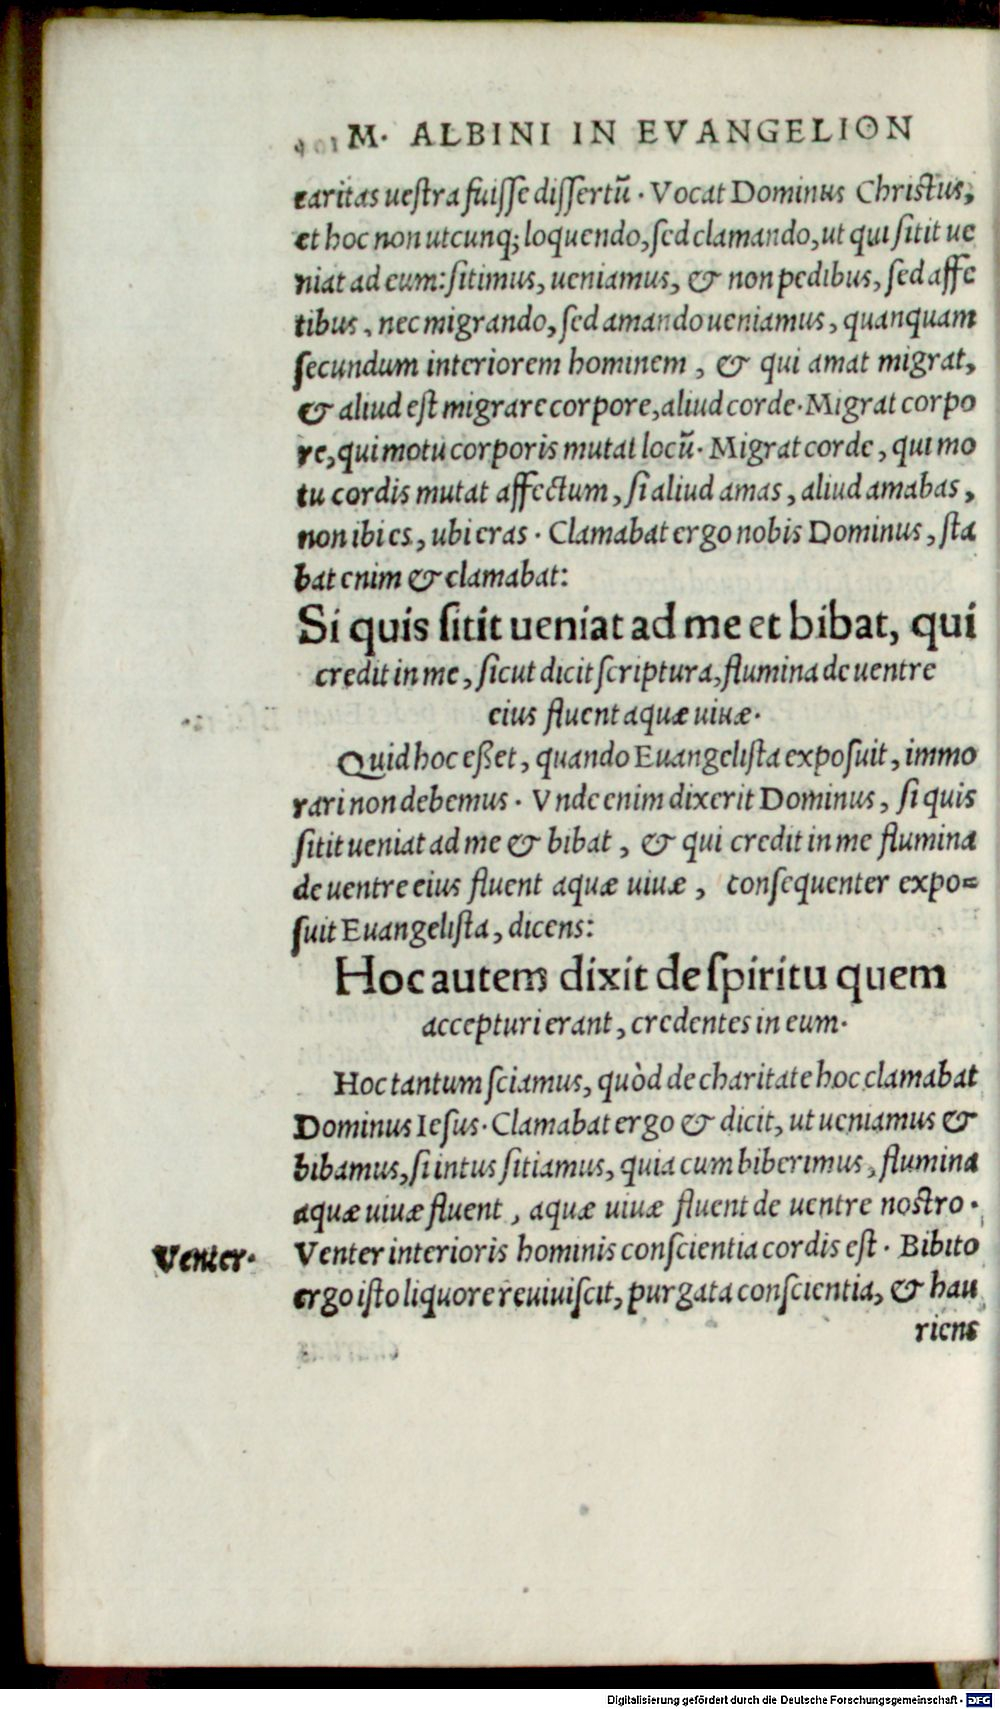 M. ALBINI IN EVANGELION
caritas uestra fuisse dissertū. Vocat Dominus Christus,
et hoc non utcunq; loquendo, sed clamando, ut qui sitit ue
niat ad eum: sitimus, ueniamus, & non pedibus, sed affe
tibus, nec migrando, sed amando ueniamus, quanquam
secundum interiorem hominem, & qui amat migrat,
& aliud est migrare corpore, aliud corde. Migrat corpo
re, qui motu corporis mutat locū. Migrat corde, qui mo
tu cordis mutat affectum, si aliud amas, aliud amabas,
non ibi es, ubi eras. Clamabat ergo nobis Dominus, sta
bat enim & clamabat:
Si quis sitit ueniat ad me et bibat, qui
credit in me, sicut dicit scriptura, flumina de uentre
eius fluent aquæ uiuæ.
Quid hoc eßet, quando Euangelista exposuit, immo
rari non debemus. Vnde enim dixerit Dominus, si quis
sitit ueniat ad me & bibat, & qui credit in me flumina
de uentre eius fluent aquæ uiuæ, consequenter expo=
suit Euangelista, dicens:
Hoc autem dixit de spiritu quem
accepturi erant, credentes in eum.
Hoc tantum sciamus, quòd de charitate hoc clamabat
Dominus Iesus. Clamabat ergo & dicit, ut ueniamus &
bibamus, si intus sitiamus, quia cum biberimus, flumina
aquæ uiuæ fluent, aquæ uiuæ fluent de uentre nostro.
Venter.
Venter interioris hominis conscientia cordis est. Bibito
ergo isto liquore reuiuiscit, purgata conscientia, & hau
riens
Digitalisierung gefördert durch die Deutsche Forschungsgemeinschaft - DFG